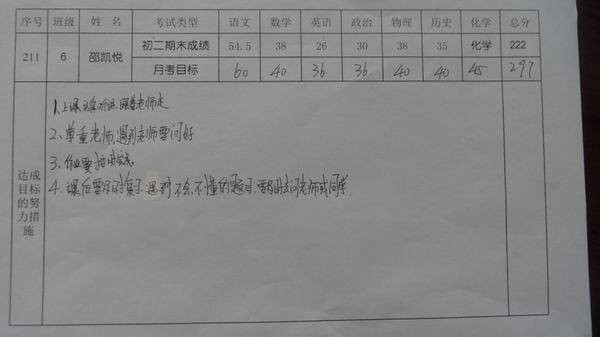 序号 班级 姓 名 考试类型 语文 数学 英语 政治 物理 历史 化学 总分
211 6 邵凯悦 初二期末成绩 54.5 38 26 30 38 35 化学 222
月考目标 60 40 36 36 40 40 45 297
达成目标的努力措施
1、上课认真听讲,跟着老师走
2、尊重老师,遇到老师要问好
3、作业要按时完成
4、课后要及时复习,遇到不会,不懂的题目,要及时去问老师或同学